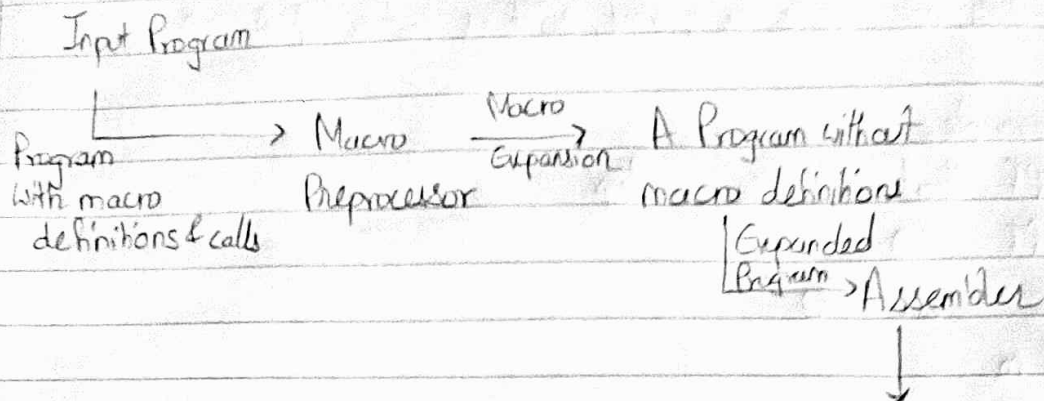 Input Program
Macro
Program
with macro
definitions & calls
Macro
Preprocessor
Expansion
A Program without
macro definitions
Expanded
Program
Assembler